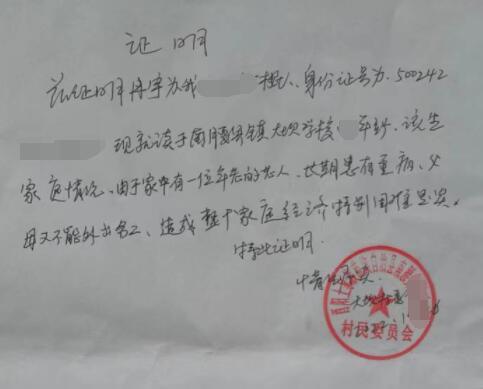 证明
兹证明冉宇为我 村人、身份证号为.500242
现就读于南腰界镇大坝学校 年级、该生
家庭情况、由于家中有一位年老的老人、长期患有重病、父
母又不能外出务工、造成整个家庭经济特别困难是实。
特此证明.
情况属实.
村民委员会